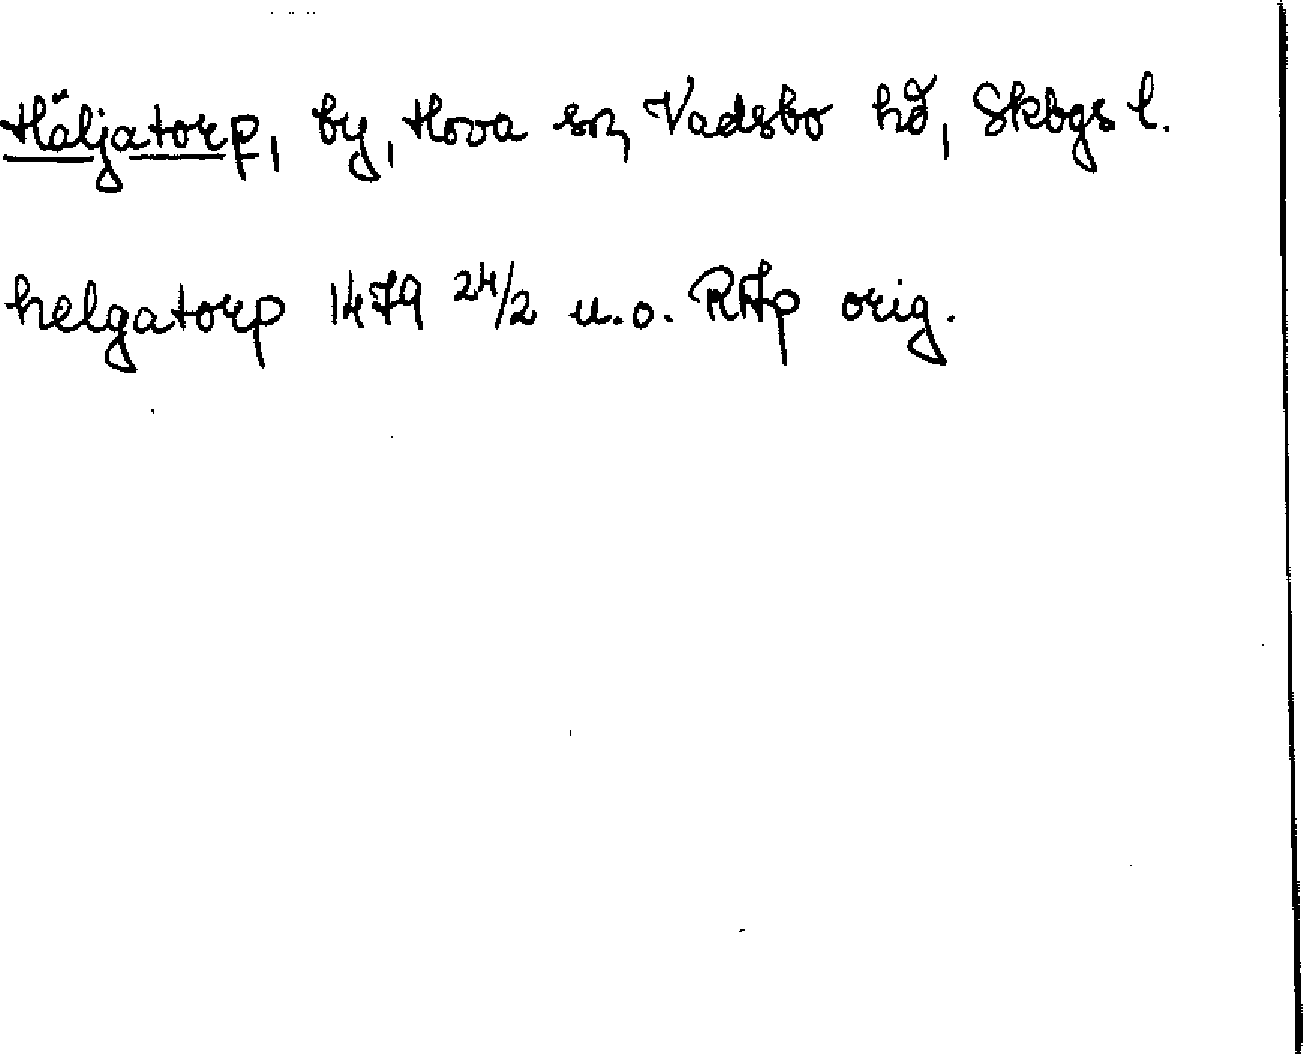 Häljatorp, by, Hova sn, Vadsbo hd, Skbgs l.
helgatorp 1479 24/2 u.o. RAp orig.